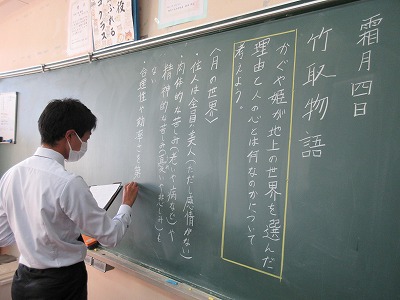 霜月四日
竹取物語
かぐや姫が地上の世界を選んだ
理由と人の心とは何なのかについて
考えよう。
〈月の世界〉
・住人は全員美人(ただし感情がない)
・肉体的な苦しみ(老いや病など)や
精神的な苦しみ(や悲しみ)も
ない
・合理性や効率